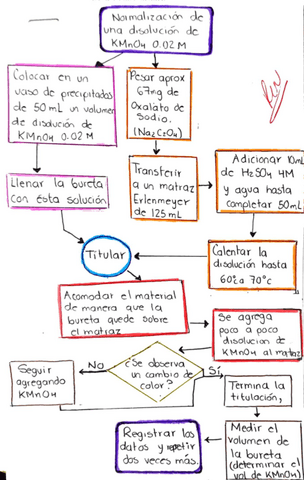 Normalización de
una disolución de
KMnO4 0.02 M
Colocar en un
vaso de precipitados
de 50 mL un volumen
de disolución de
KMnO4 0.02 M
Pesar aprox
67mg de
Oxalato de
Sodio.
(Na2C2O4)
Llenar la bureta
con ésta solución
Transferir
a un matraz
Erlenmeyer
de 125 mL
Adicionar 10mL
de H2SO4 4M
y agua hasta
completar 50mL
Titular
Calentar la
disolución hasta
60°a 70°c
Acomodar el material
de manera que la
bureta quede sobre
el matraz
Se agrega
poco a poco
disolucion de
KMnO4 al matraz
¿Se observa
un cambio de
color?
No
Sí
Seguir
agregando
KMnO4
Termina la
titulación,
Medir el
volumen de
la bureta
(determinar el
vol de KMnO4)
Registrar los
datos y repetir
dos veces más.